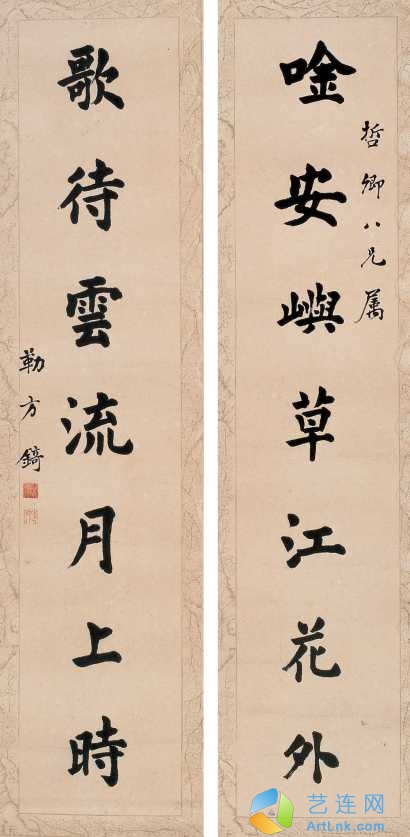 哲卿八兄属
唫安嶼草江花外
歌待雲流月上時
勒方錡
艺连网
ArtLnk.com